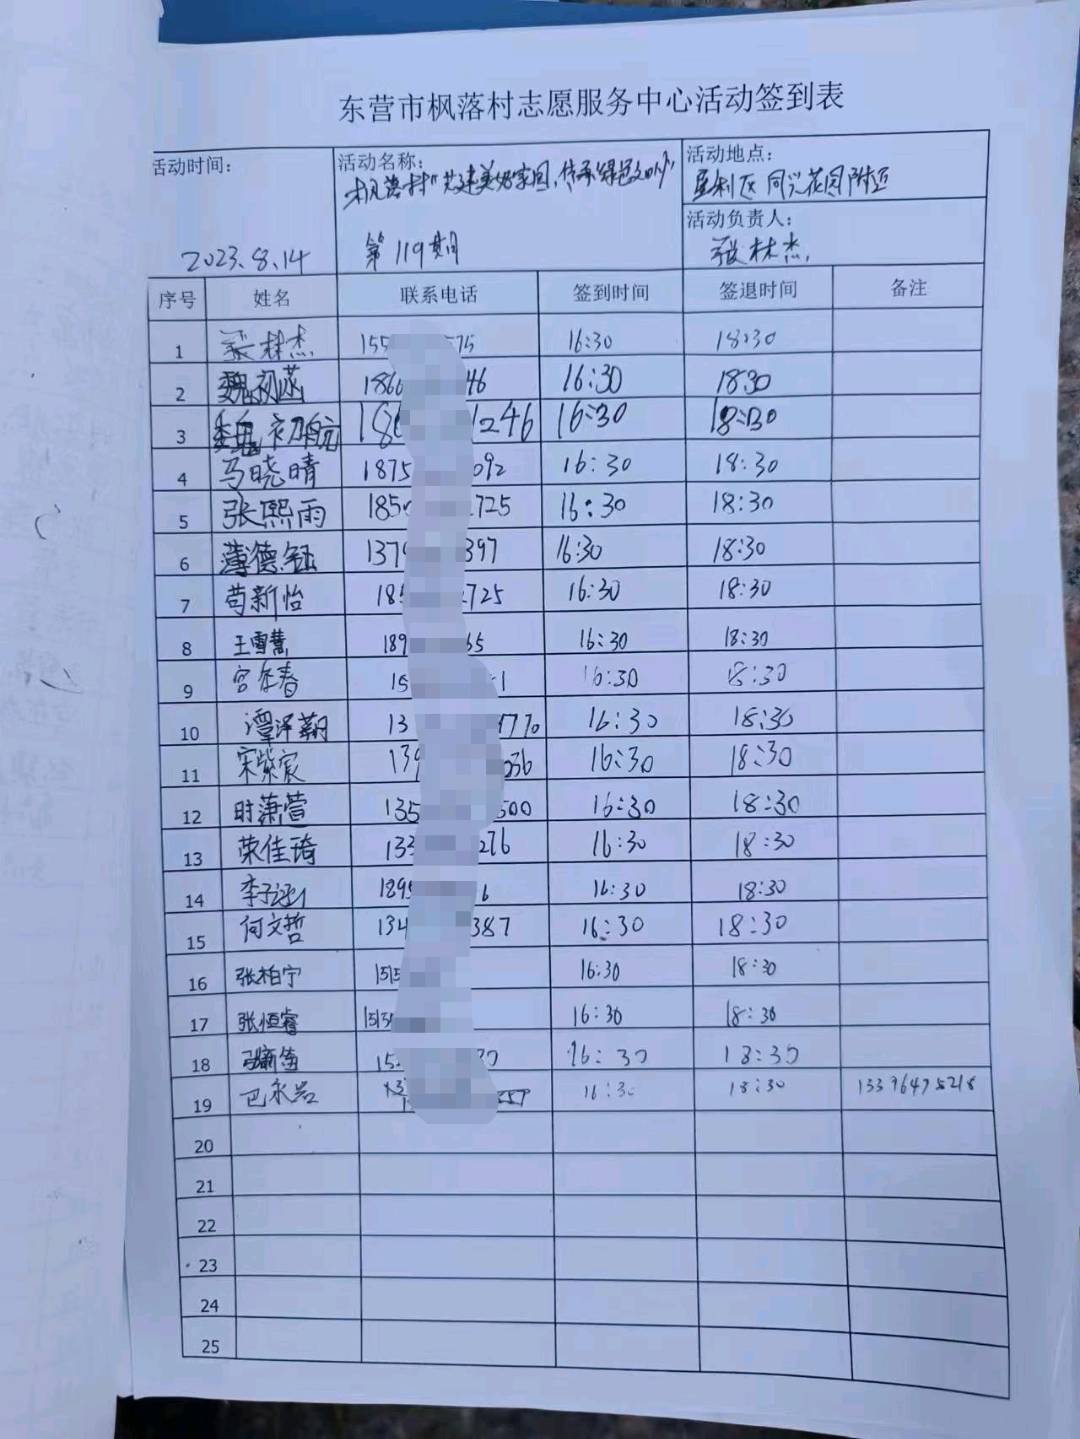 东营市枫落村志愿服务中心活动签到表
活动时间: 2023.8.14
活动名称: 枫落村"共建美好家园,传承绿色文明"
第119期
活动地点: 垦利区 同兴花园附近
活动负责人: 张林杰
序号 姓名 联系电话 签到时间 签退时间 备注
1 张林杰 155 575 16:30 18:30
2 魏初涵 186 46 16:30 1830
3 魏初航 18 1246 16:30 18:30
4 马晓晴 1875 092 16:30 18:30
5 张熙雨 1850 725 16:30 18:30
6 薄德钰 1379 397 16:30 18:30
7 苟新怡 185 725 16:30 18:30
8 王雪慧 189 65 16:30 18:30
9 15 1 16:30 18:30
10 谭泽翱 13 770 16:30 18:30
11 宋紫宸 139 036 16:30 18:30
12 时萧萱 135 500 16:30 18:30
13 荣佳琦 133 276 16:30 18:30
14 李子涵 1895 6 16:30 18:30
15 何文哲 134 387 16:30 18:30
16 张柏宁 1515 16:30 18:30
17 张恒睿 1515 16:30 18:30
18 15 16:30 18:30
19 16:30 18:30 13396475218
20
21
22
23
24
25